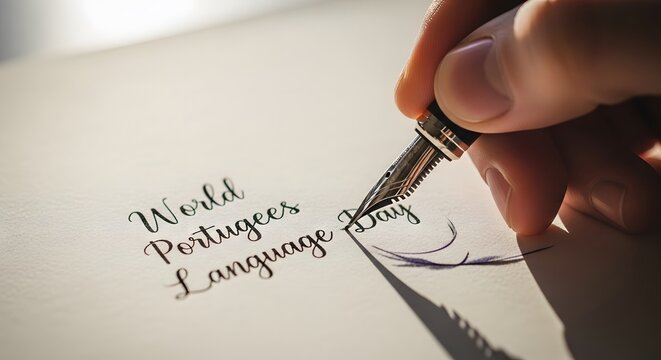 World
Portugees
Language Day